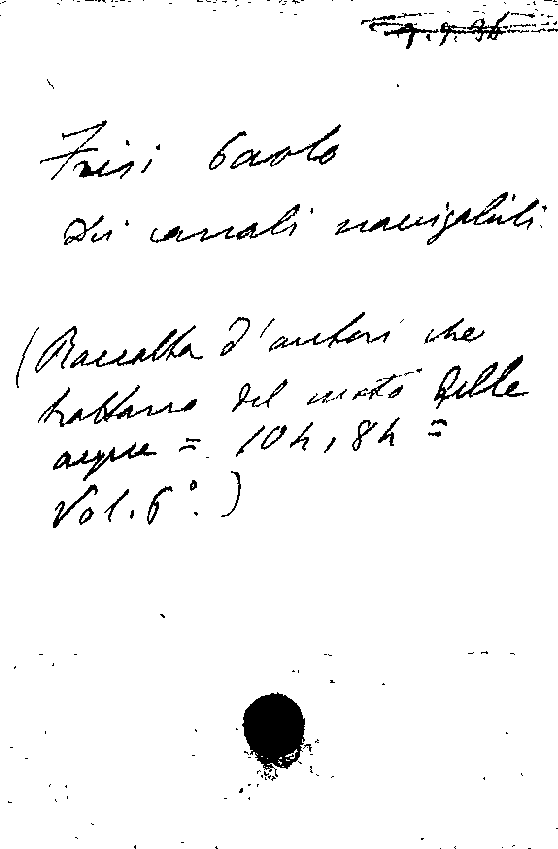 9.9.34
Frisi Paolo
Dei canali navigabili
(Raccolta d'autori che
trattano del moto delle
acque = 10 h, 8 h =
Vol. 6°.)